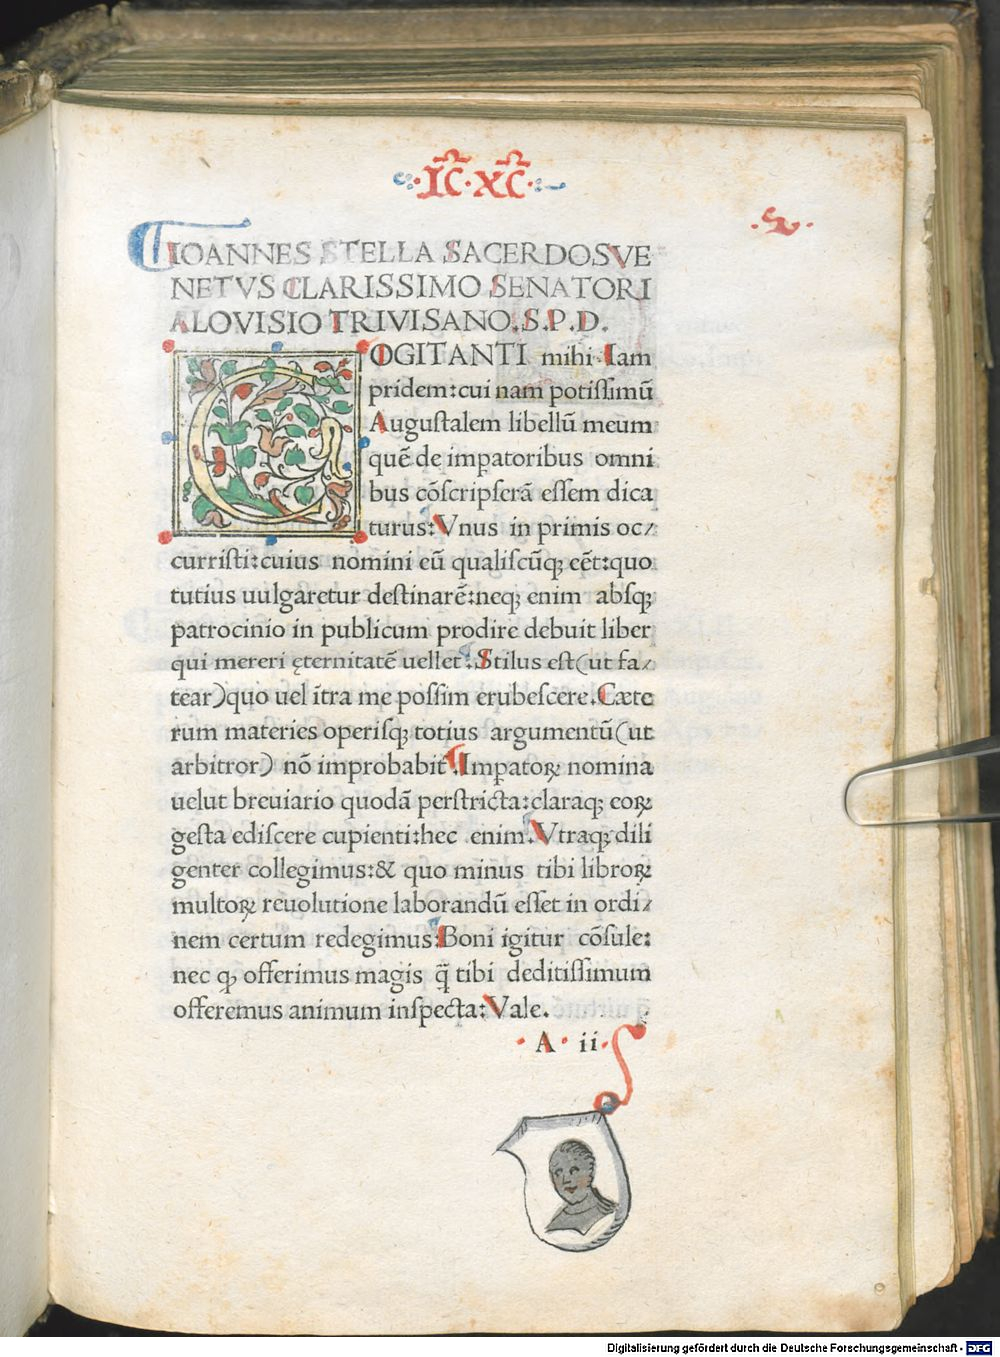 ·IC·XC·
IOANNES STELLA SACERDOS VE
NETVS CLARISSIMO SENATORI
ALOVISIO TRIVISANO.S.P.D.
COGITANTI mihi Iam
pridem:cui nam potissimū
Augustalem libellū meum
quē de impatoribus omni
bus cōscripserā essem dica
turus:Vnus in primis oc/
curristi:cuius nomini eū qualiscūqꝫ eēt:quo
tutius uulgaretur destinarē:neqꝫ enim absqꝫ
patrocinio in publicum prodire debuit liber
qui mereri ęternitatē uellet.Stilus est(ut fa/
tear)quo uel ītra me possim erubescere.Cæte
rum materies operisqꝫ totius argumentū(ut
arbitror)nō improbabit̄.Impatoꝝ nomina
uelut breuiario quodā perstricta:claraqꝫ eoꝝ
gesta ediscere cupienti:hec enim.Vtraqꝫ dili
genter collegimus:& quo minus tibi libroꝝ
multoꝝ reuolutione laborandū esset in ordi/
nem certum redegimus:Boni igitur cōsule:
nec ꝙ offerimus magis q̄ tibi deditissimum
offeremus animum inspecta:Vale.
A ii
Digitalisierung gefördert durch die Deutsche Forschungsgemeinschaft - DFG